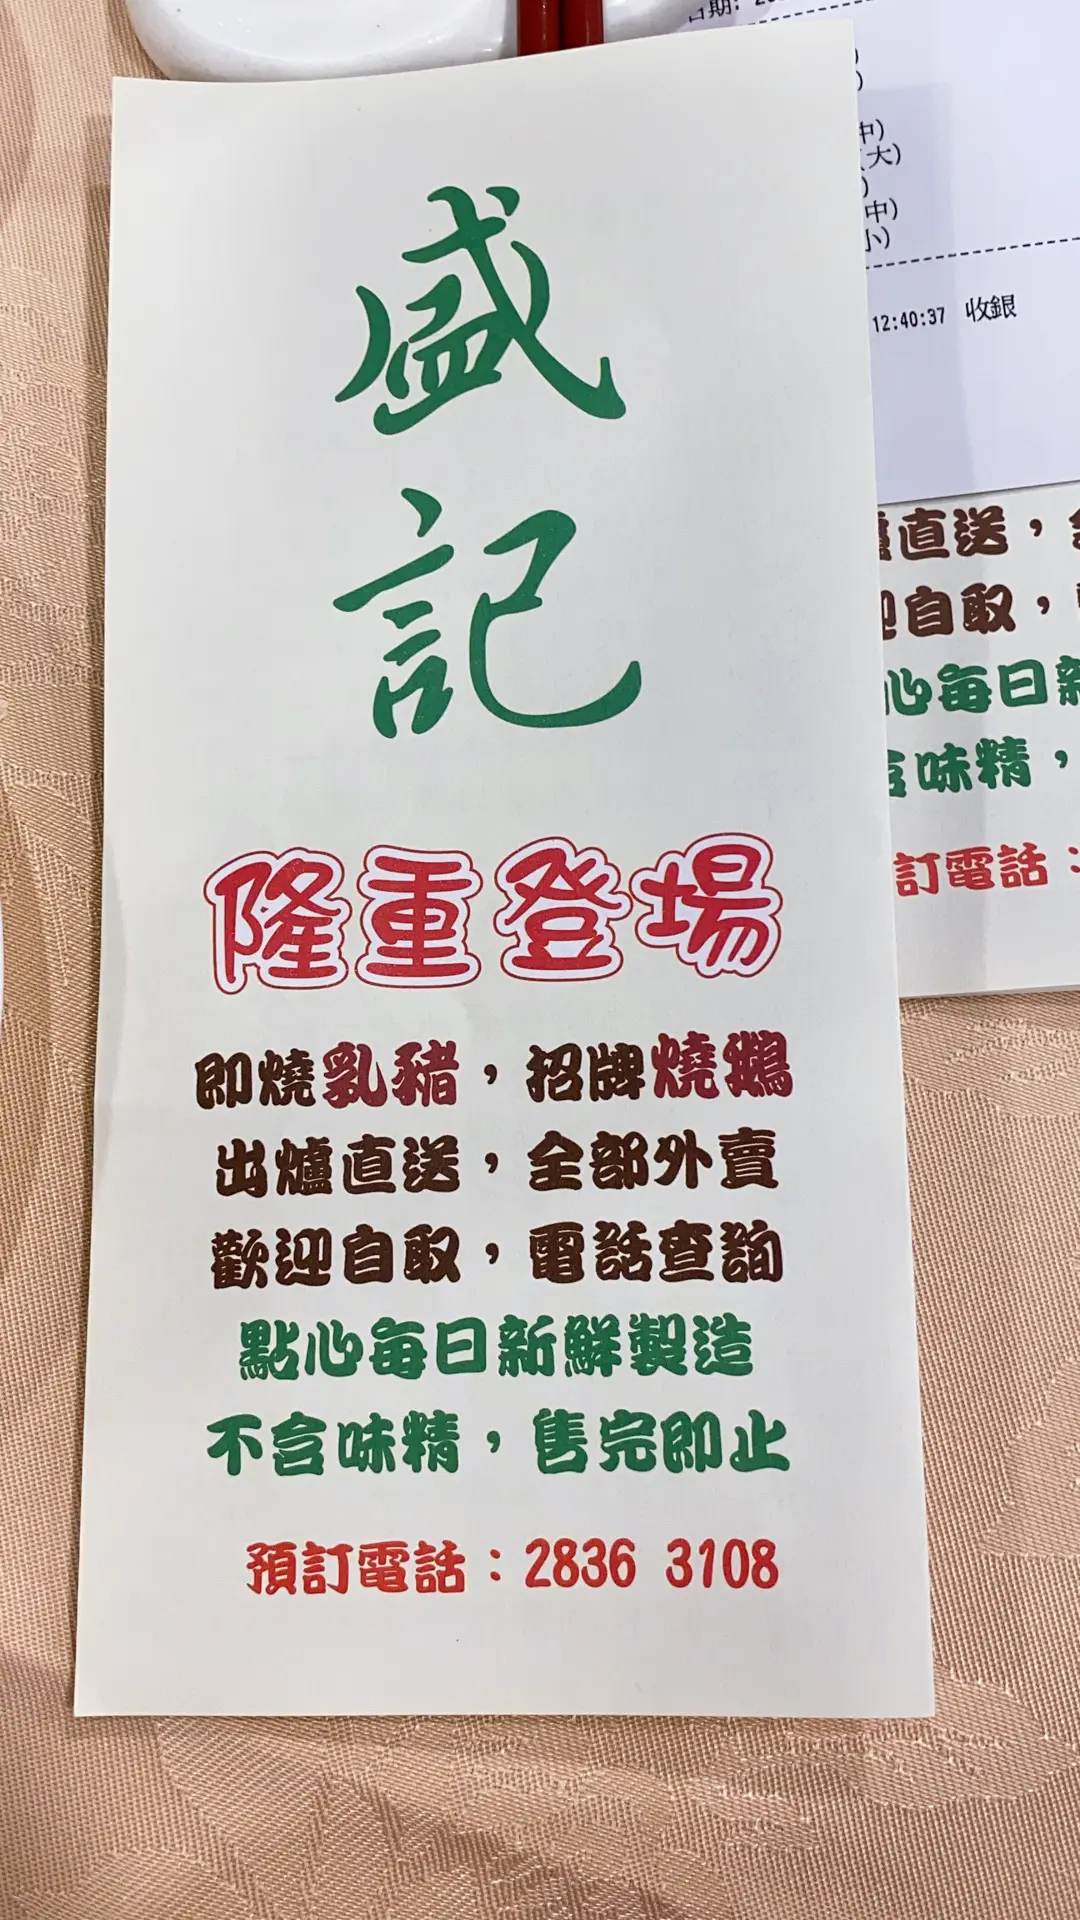 盛
記
隆重登場
即燒乳豬，招牌燒鵝
出爐直送，全部外賣
歡迎自取，電話查詢
點心每日新鮮製造
不含味精，售完即止
預訂電話：2836 3108
日期:
中)
(大)
)
(中)
小)
12:40:37 收銀
直送，
自取，
心每日新
含味精，
訂電話：